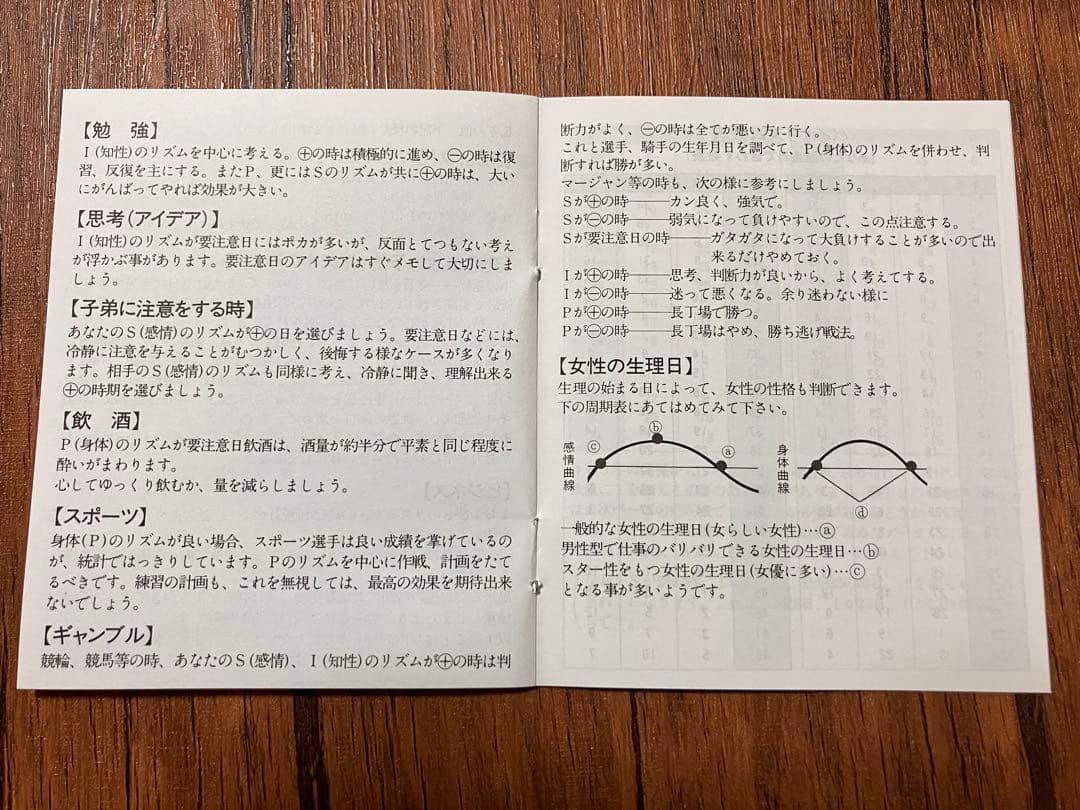 【勉　強】
Ｉ(知性)のリズムを中心に考える。㊉の時は積極的に進め、㊀の時は復
習、反復を主にする。またＰ、更にはＳのリズムが共に㊉の時は、大い
にがんばってやれば効果が大きい。
【思考(アイデア)】
Ｉ(知性)のリズムが要注意日にはポカが多いが、反面とてつもない考え
が浮かぶ事があります。要注意日のアイデアはすぐメモして大切にしま
しょう。
【子弟に注意をする時】
あなたのＳ(感情)のリズムが㊉の日を選びましょう。要注意日などには、
冷静に注意を与えることがむつかしく、後悔する様なケースが多くなり
ます。相手のＳ(感情)のリズムも同様に考え、冷静に聞き、理解出来る
㊉の時期を選びましょう。
【飲　酒】
Ｐ(身体)のリズムが要注意日飲酒は、酒量が約半分で平素と同じ程度に
酔いがまわります。
心してゆっくり飲むか、量を減らしましょう。
【スポーツ】
身体(Ｐ)のリズムが良い場合、スポーツ選手は良い成績を掌げているの
が、統計ではっきりしています。Ｐのリズムを中心に作戦、計画をたて
るべきです。練習の計画も、これを無視しては、最高の効果を期待出来
ないでしょう。
【ギャンブル】
競輪、競馬等の時、あなたのＳ(感情)、Ｉ(知性)のリズムが㊉の時は判
断力がよく、㊀の時は全てが悪い方に行く。
これと選手、騎手の生年月日を調べて、Ｐ(身体)のリズムを併わせ、判
断すれば勝が多い。
マージャン等の時も、次の様に参考にしましょう。
Ｓが㊉の時───カン良く、強気で。
Ｓが㊀の時───弱気になって負けやすいので、この点注意する。
Ｓが要注意日の時───ガタガタになって大負けすることが多いので出
来るだけやめておく。
Ｉが㊉の時───思考、判断力が良いから、よく考えてする。
Ｉが㊀の時───迷って悪くなる。余り迷わない様に
Ｐが㊉の時───長丁場で勝つ。
Ｐが㊀の時───長丁場はやめ、勝ち逃げ戦法。
【女性の生理日】
生理の始まる日によって、女性の性格も判断できます。
下の周期表にあてはめてみて下さい。
感情曲線
ⓒ
ⓑ
ⓐ
身体曲線
ⓓ
一般的な女性の生理日(女らしい女性)…ⓐ
男性型で仕事のバリバリできる女性の生理日…ⓑ
スター性をもつ女性の生理日(女優に多い)…ⓒ
となる事が多いようです。